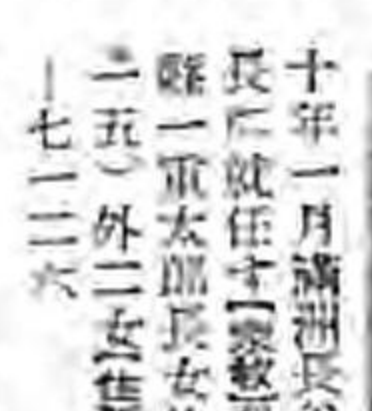 十年一月滿洲長
長に就任す【宗敎】
縣一軍太郎長女
一五)外二女【住
―七一二六